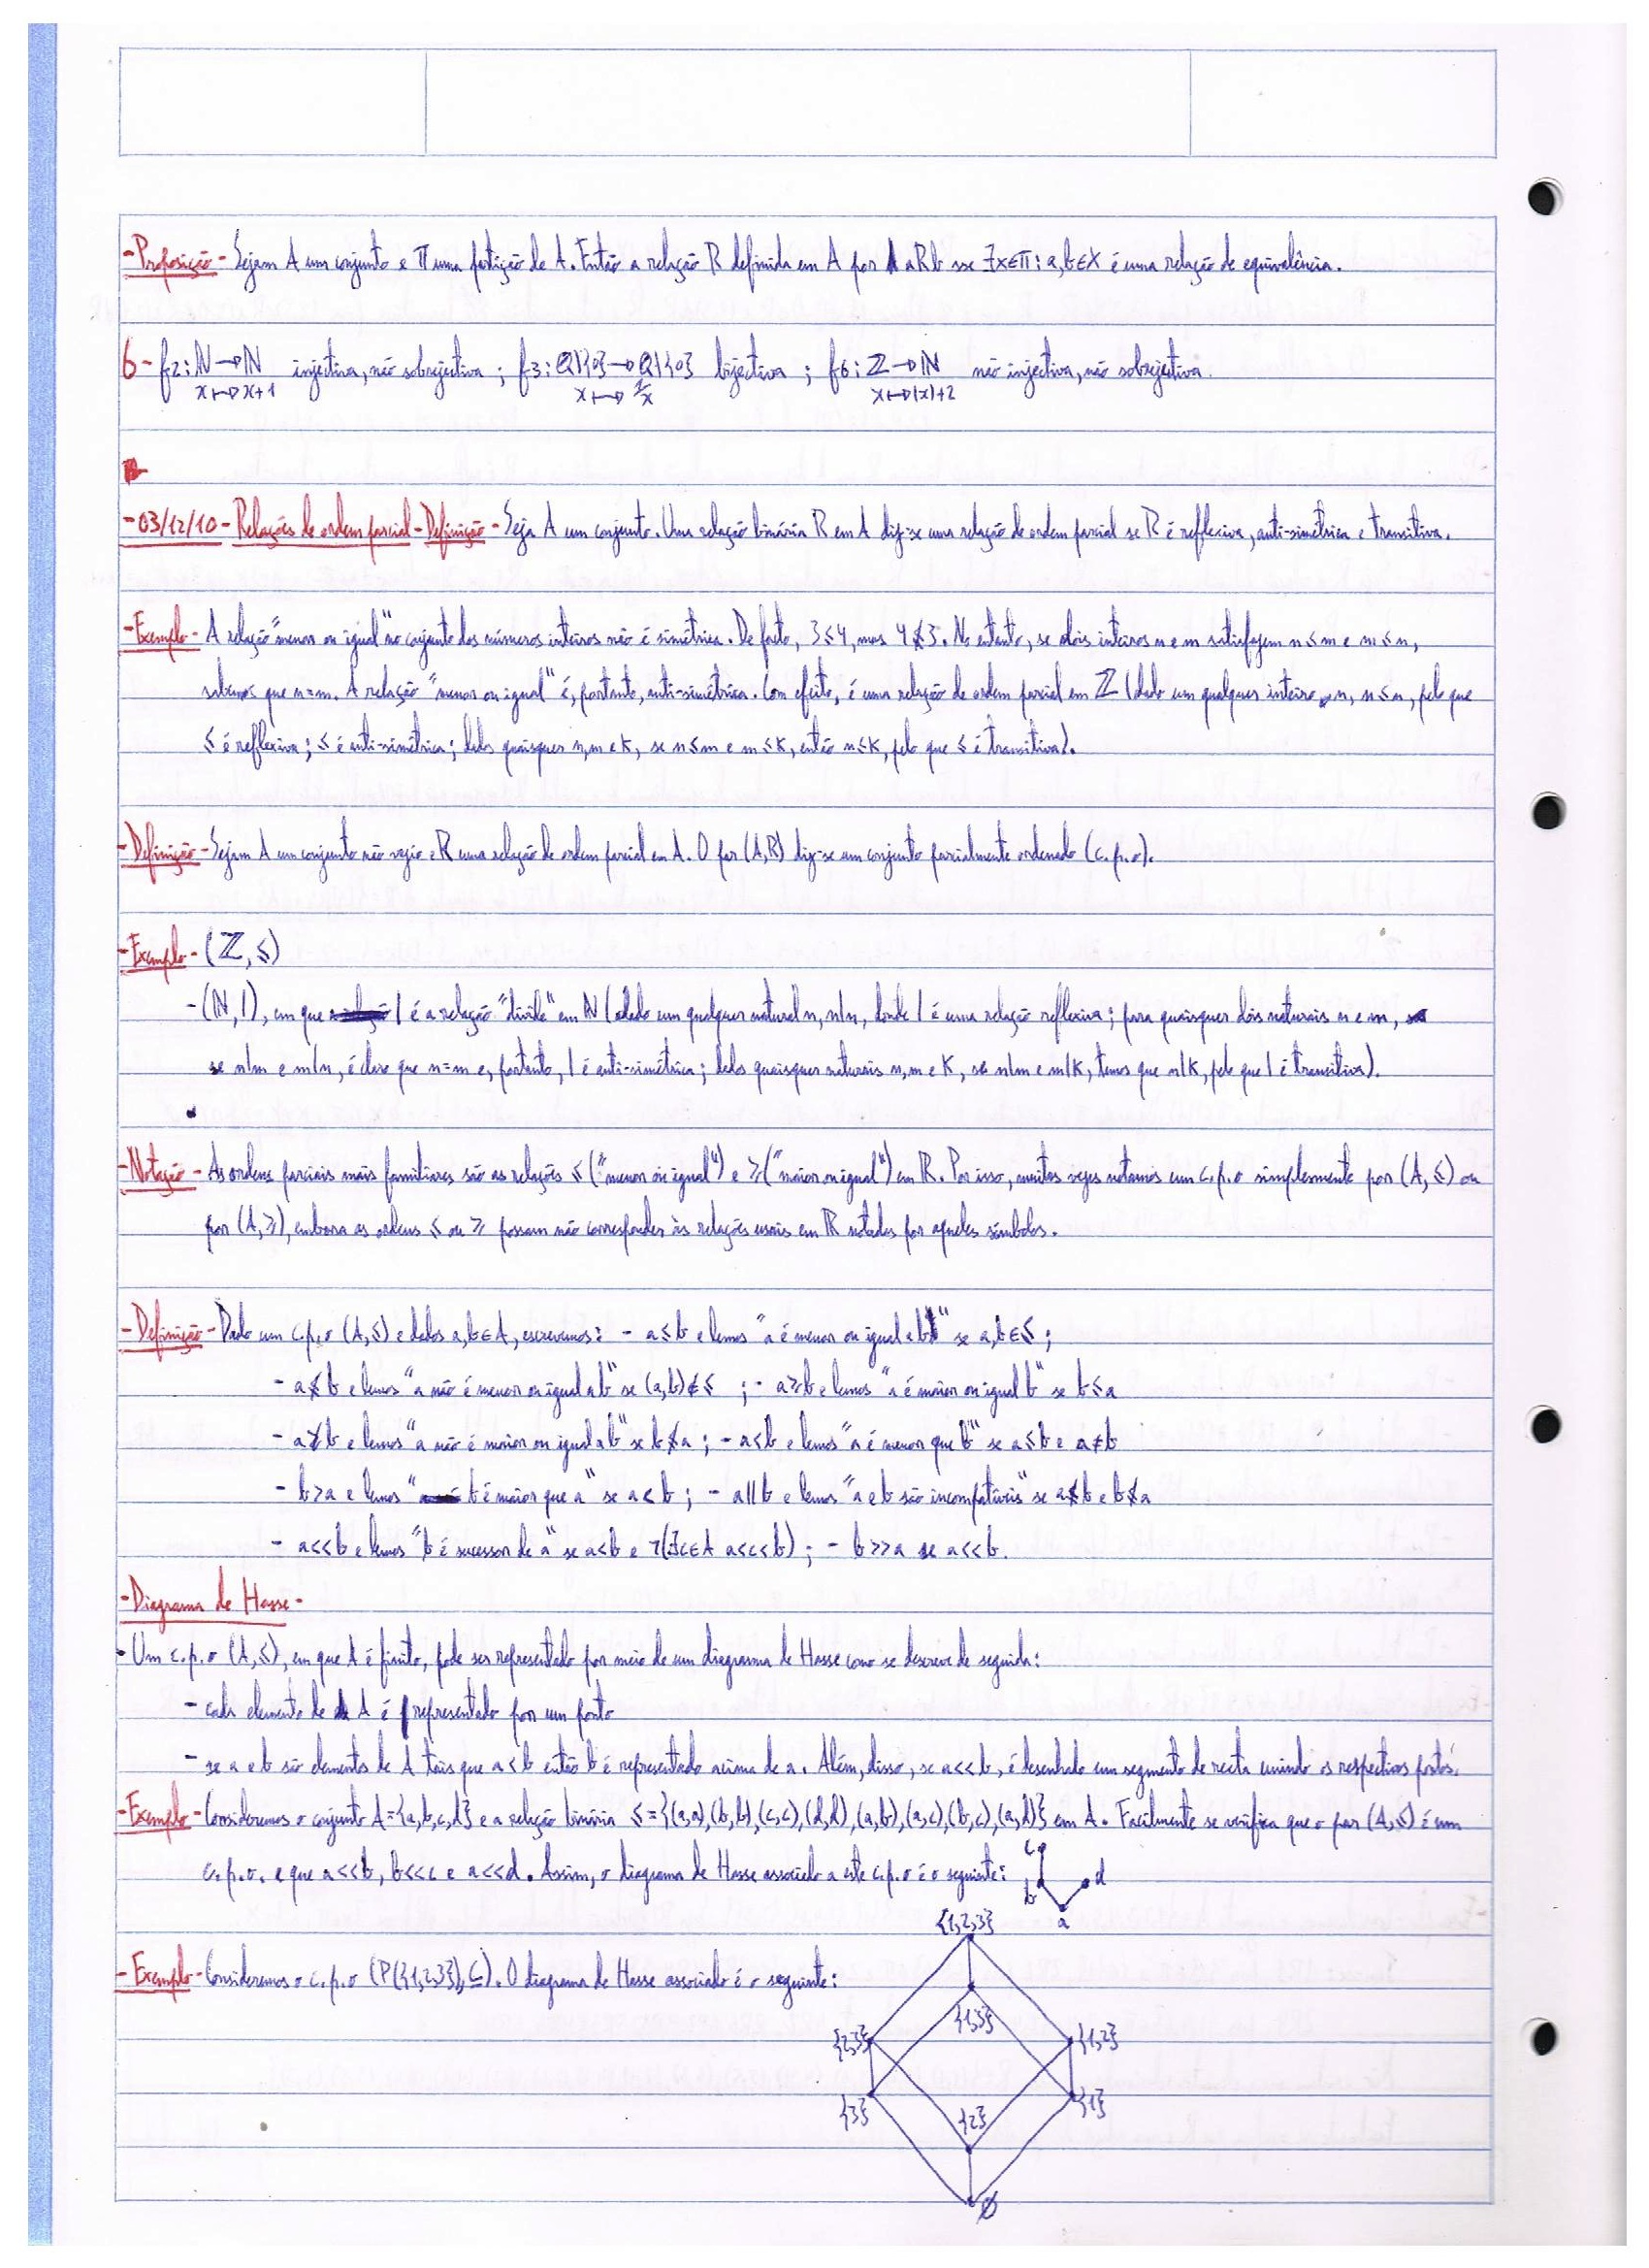 -Proposição- Sejam A um conjunto e Π uma partição de A. Então a relação R definida em A por aRb sse ∃X∈Π: a,b∈X é uma relação de equivalência.
6- f2: ℕ→ℕ injectiva, não sobrejectiva ; f3: ℚ\{0}→ℚ\{0} bijectiva ; f6: ℤ→ℕ não injectiva, não sobrejectiva.
x↦x+1 x↦1/x x↦|x|+2
-03/12/10- Relações de ordem parcial - Definição - Seja A um conjunto. Uma relação binária R em A diz-se uma relação de ordem parcial se R é reflexiva, anti-simétrica e transitiva.
-Exemplo- A relação "menor ou igual" no conjunto dos números inteiros não é simétrica. De facto, 3≤4, mas 4≰3. No entanto, se dois inteiros n e m satisfazem n≤m e m≤n,
sabemos que n=m. A relação "menor ou igual" é, portanto, anti-simétrica. Com efeito, é uma relação de ordem parcial em ℤ (dado um qualquer inteiro n, n≤n, pelo que
≤ é reflexiva; ≤ é anti-simétrica; dados quaisquer n,m e k, se n≤m e m≤k, então n≤k, pelo que ≤ é transitiva).
-Definição- Sejam A um conjunto não vazio e R uma relação de ordem parcial em A. O par (A,R) diz-se um conjunto parcialmente ordenado (c.p.o).
-Exemplo- (ℤ,≤)
-(ℕ,|), em que | é a relação "divide" em ℕ (dado um qualquer natural n, n|n, donde | é uma relação reflexiva; para quaisquer dois naturais n e m,
se n|m e m|n, é claro que n=m e, portanto, | é anti-simétrica; dados quaisquer naturais n,m e k, se n|m e m|k, temos que n|k, pelo que | é transitiva).
-Notação- As ordens parciais mais familiares são as relações ≤ ("menor ou igual") e ≥ ("maior ou igual") em ℝ. Por isso, muitas vezes notamos um c.p.o simplesmente por (A,≤) ou
por (A,≥), embora as ordens ≤ ou ≥ possam não corresponder às relações usuais em ℝ notadas por aqueles símbolos.
-Definição- Dado um c.p.o (A,≤) e dados a,b∈A, escrevemos: - a≤b e lemos "a é menor ou igual a b" se a,b∈≤;
- a≰b e lemos "a não é menor ou igual a b" se (a,b)∉≤ ; - a≥b e lemos "a é maior ou igual b" se b≤a
- a≱b e lemos "a não é maior ou igual a b" se b≰a ; - a<b e lemos "a é menor que b" se a≤b e a≠b
- b>a e lemos "b é maior que a" se a<b ; - a||b e lemos "a e b são incompatíveis" se a≰b e b≰a
- a<<b e lemos "b é sucessor de a" se a<b e ¬(∃c∈A a<c<b) ; - b>>a se a<<b.
-Diagrama de Hasse-
-Um c.p.o (A,≤), em que A é finito, pode ser representado por meio de um diagrama de Hasse como se descreve de seguida:
- cada elemento de A é representado por um ponto
- se a e b são elementos de A tais que a<b então b é representado acima de a. Além, disso, se a<<b, é desenhado um segmento de recta unindo os respectivos pontos.
-Exemplo- Consideremos o conjunto A={a,b,c,d} e a relação binária ≤={(a,a),(b,b),(c,c),(d,d),(a,b),(a,c),(b,c),(a,d)} em A. Facilmente se verifica que o par (A,≤) é um
c.p.o. e que a<<b, b<<c e a<<d. Assim, o diagrama de Hasse associado a este c.p.o é o seguinte:
c
b d
a
{1,2,3}
-Exemplo- Consideremos o c.p.o (P({1,2,3}),⊆). O diagrama de Hasse associado é o seguinte:
{1,3}
{2,3} {1,2}
{3} {2} {1}
∅